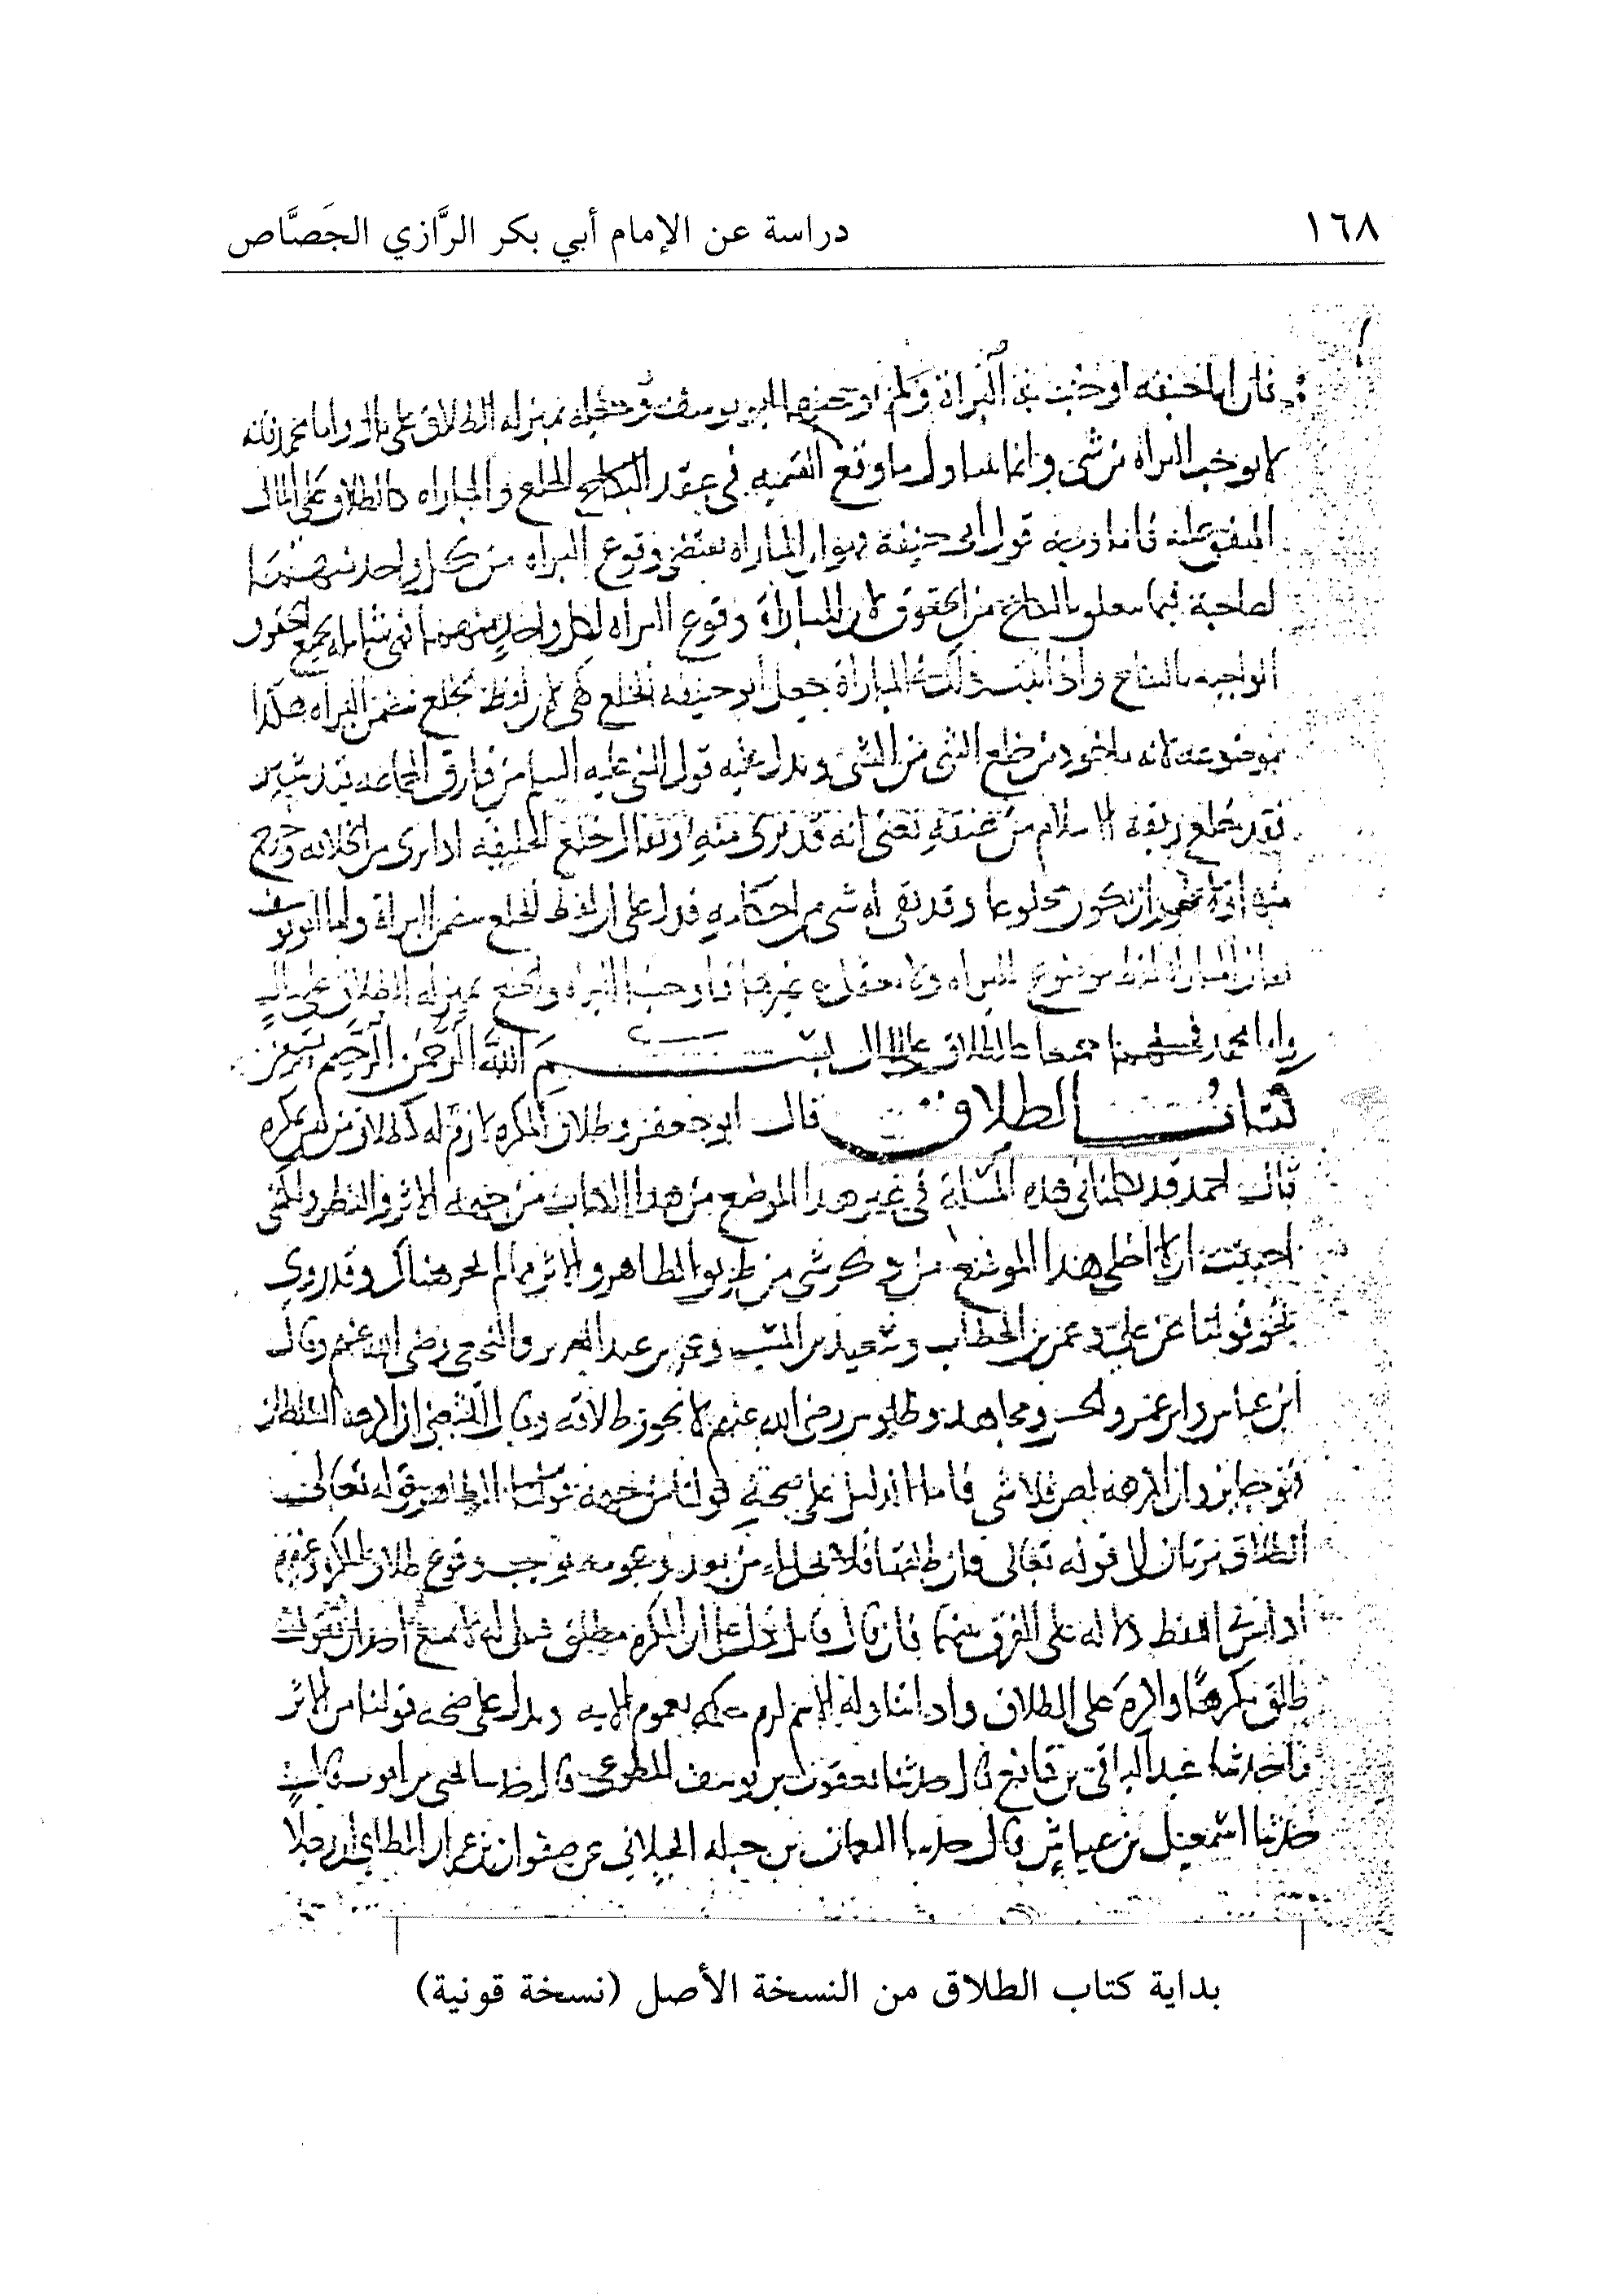 ١٦٨ دراسة عن الإمام أبي بكر الرَّازي الجَصَّاص
فان ابا حنيفه اوجب به البراة ولم يوجبها ابو يوسف وجعله بمنزله الطلاق على مال واما محمد فانه
لا يوجب البراه من شى وانما يتناول ما وقع التسميه فى عقد الخلع والمباراه كالطلاق على المال
المتفق عليه فاما وجه قول ابى حنيفة فهو ان المباراه تقتضى وقوع البراه من كل واحد منهما
لصاحبة فيما يتعلق بالنكاح من الحقوق لان المباراة وقوع البراه لكل واحد منهما فهى شامله لجميع الحقوق
الواجبه بالنكاح واذا ثبت ذلك فى المباراة جعل ابو حنيفه الخلع لان لفظ الخلع يتضمن البراه هكذا
موضوعه لانه ماخوذ من خلع الشى من الشى ويدل عليه قول النبى عليه السلم من فارق الجماعه قيد شبر
فقد خلع ربقه الاسلام من عنقه يعنى انه قد برى منه ويقال خلع الخليفه اذا برى من الخلافه وخرج
منها ان يكون مخلوعا وقد بقى له شى من احكامه فدل على ان لفظ الخلع يتضمن البراة واما ابو يوسف
فقال المباراة لفظ موضوع للبراه ولا يعقل به غيرها فاوجب البراه والخلع بمنزله الطلاق على مال
واما محمد فجعلهما جميعا كالطلاق على مال بسم الله الرحمن الرحيم
كتاب الطلاق قال ابو جعفر وطلاق المكره لازم له كطلاق من لم يكره
قال احمد قد تكلمنا فى هذه المسئلة فى غير هذا الموضع من هذا الكتاب من جهه الاثر والنظر ولكنى
احببت ان لا اخلى هذا الموضع من ذكر شى من طريق الظاهر والاثر مما لم يجر هناك وقد روى
نحو قولنا عن على وعمر بن الخطاب وسعيد بن المسيب وعمر بن عبد العزيز والنخعى رضى الله عنهم وقال
ابن عباس وابن عمر والحسن ومجاهد وطاوس رضى الله عنهم لا يجوز طلاقه وقال الشعبى ان اكرهه السلطان
فهو جايز وان اكرهه لص فلا شى فاما الدليل على صحة قولنا من جهه الظاهر قوله تعالى
الطلاق مرتان الى قوله تعالى فان طلقها فلا تحل له من بعد وعمومه يوجب وقوع طلاق المكره وغيره
اذ ليس فى اللفظ دلاله على الفرق بينهما فان قال قايل دلل على ان المكره مطلق قيل له لا يمتنع احد ان يقول
طلق مكرها واكره على الطلاق واذا تناوله الاسم لزم حكمه بعموم الايه ويدل على صحه قولنا من الاثر
ما حدثنا عبد الباقى بن قانع قال حدثنا يعقوب بن يوسف المطوعى قال حدثنا يحيى بن ايوب قال
حدثنا اسمعيل بن عياش قال حدثنا الغاز بن جبله الجبلانى عن صفوان بن عمران الطائى ان رجلا
بداية كتاب الطلاق من النسخة الأصل (نسخة قونية)